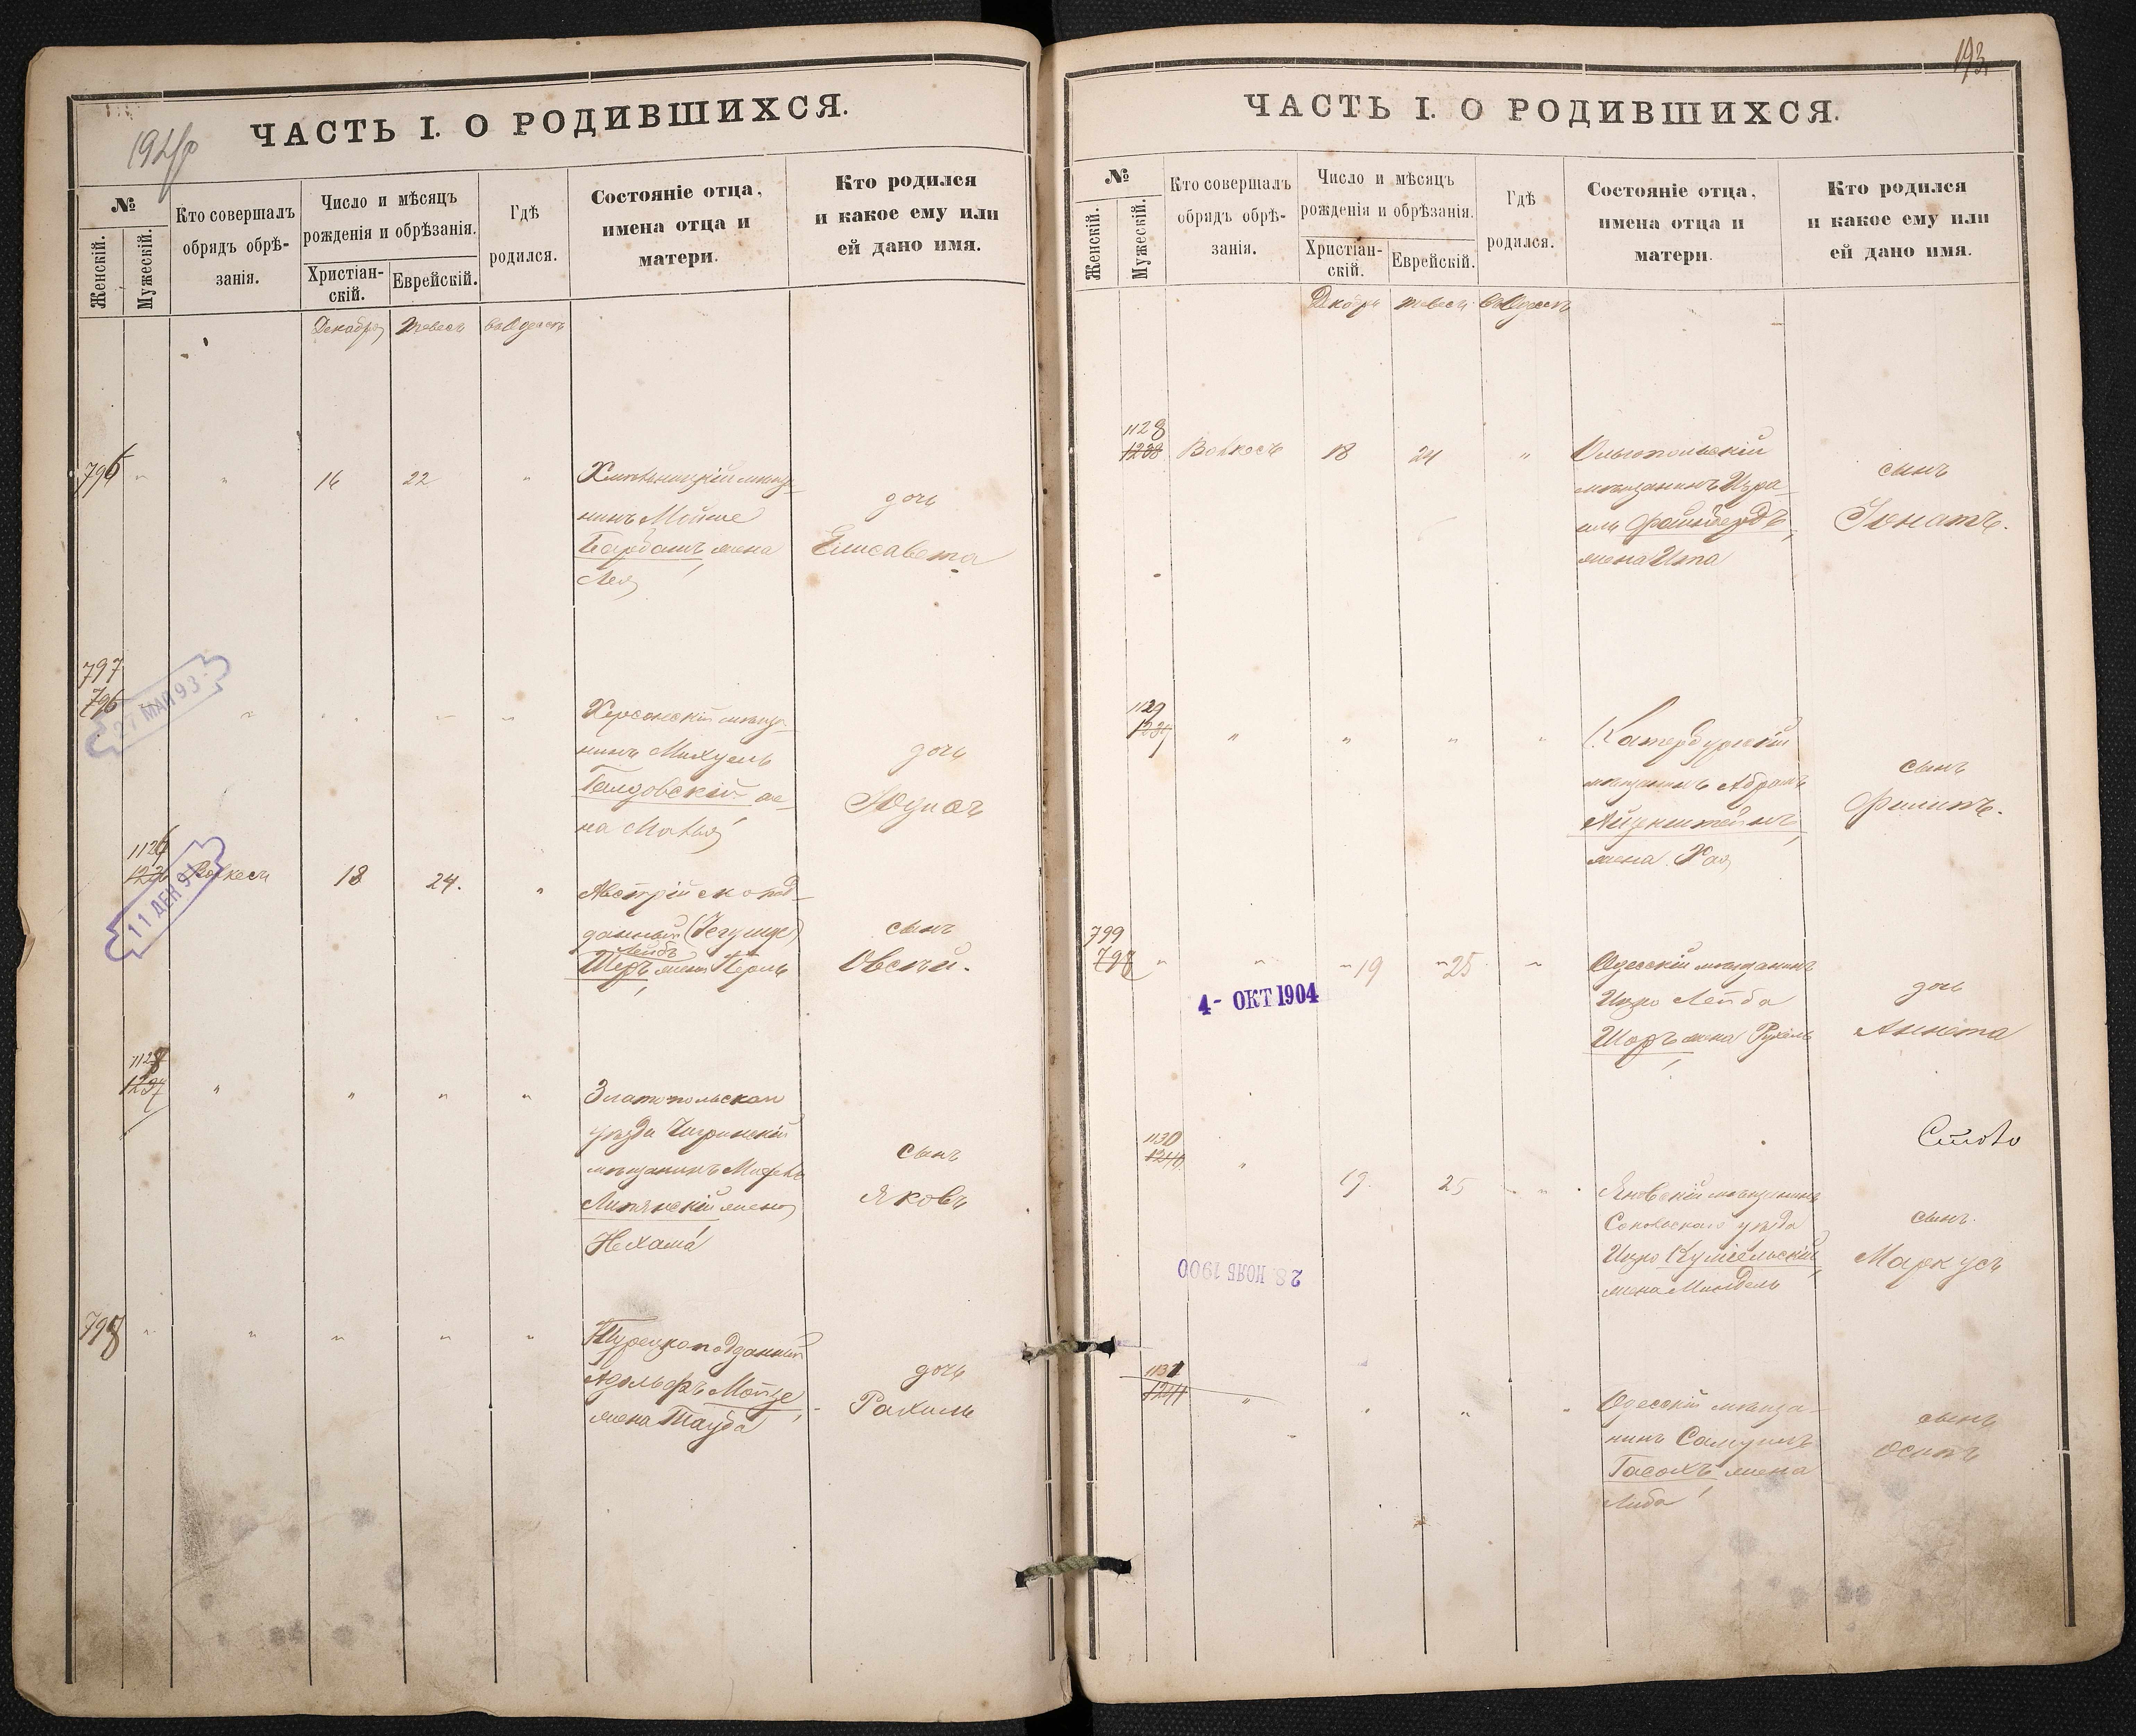 ЧАСТЬ I. О РОДИВШИХСЯ.
№
Женскій.
Мужескій.
Кто совершалъ
обрядъ обрѣ-
занія.
Число и мѣсяцъ
рожденія и обрѣзанія.
Христіан-
скій.
Еврейскій.
Гдѣ
родился.
Состояніе отца,
имена отца и
матери.
Кто родился
и какое ему или
ей дано имя.
Декабря Тевесъ Въ Одессѣ
796 " " 16 22 "
Хмѣльницкій мѣща-
нинъ Мойше
жена
Лея
дочь
Елисавета
797
796
27 МАЯ 93
Херсонскій мѣща-
нинъ Михуель
же-
на
дочь
1126
1236 Волкесъ 18 24. "
11 ДЕН 91
Австрійско под-
данный
Лейбъ
Шеръ жена Перль
сынъ
Овсѣй.
1237 " " " "
Златопольская
уѣзда Чигринскій
мѣщанинъ
Липянскій жена
Нехама
сынъ
Яковъ
798 " " " " "
Турецкоподданный
Адольфъ
жена Тауба
дочь
Рахиль
193
ЧАСТЬ I. О РОДИВШИХСЯ.
№
Женскій.
Мужескій.
Кто совершалъ
обрядъ обрѣ-
занія.
Число и мѣсяцъ
рожденія и обрѣзанія.
Христіан-
скій.
Еврейскій.
Гдѣ
родился.
Состояніе отца,
имена отца и
матери.
Кто родился
и какое ему или
ей дано имя.
Декабря Тевесъ Въ Одессѣ
1128
1238 Волкесъ 18 24 "
Ольгопольскій
мѣщанинъ Изра-
иль
жена Ита
сынъ
Іонатъ.
1129
1239 " " " "
Катербургскій
мѣщанинъ Абрамъ
Айзенштейнъ
жена Хая
сынъ
Филипъ.
799
797 " " 19 25 "
4- ОКТ 1904
Одесскій мѣщанинъ
Ицко Лейба
Шоръ жена Рухель
дочь
Аннета
1130
1240 " 19. 25 "
28. НОЯБ 1900
Яновскій мѣщанинъ
уѣзда
Ицко
жена Миндель
сынъ.
Маркусъ
1131
1241 " " " "
Одесскій мѣща-
нинъ Самуилъ
жена
Либа
сынъ
Осипъ